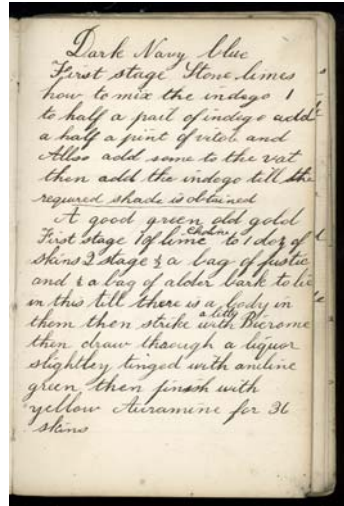 Dark Navy blue
First stage Stone limes
how to mix the indego 1
to half a pail of indego add
a half a pint of vitol and
Allso add some to the vat
then add the indogo till the
requured shade is obtained
A good green old gold
First stage 1 of lime to 1 doz of
skins 2 stage ½ a bag of fustic
and ½ a bag of alder bark to lie
in this till there is a body in
them then strike a little with Bicrome
then draw through a liquor
slightley tinged with aneline
green then finish with
yellow Auramine for 36
skins